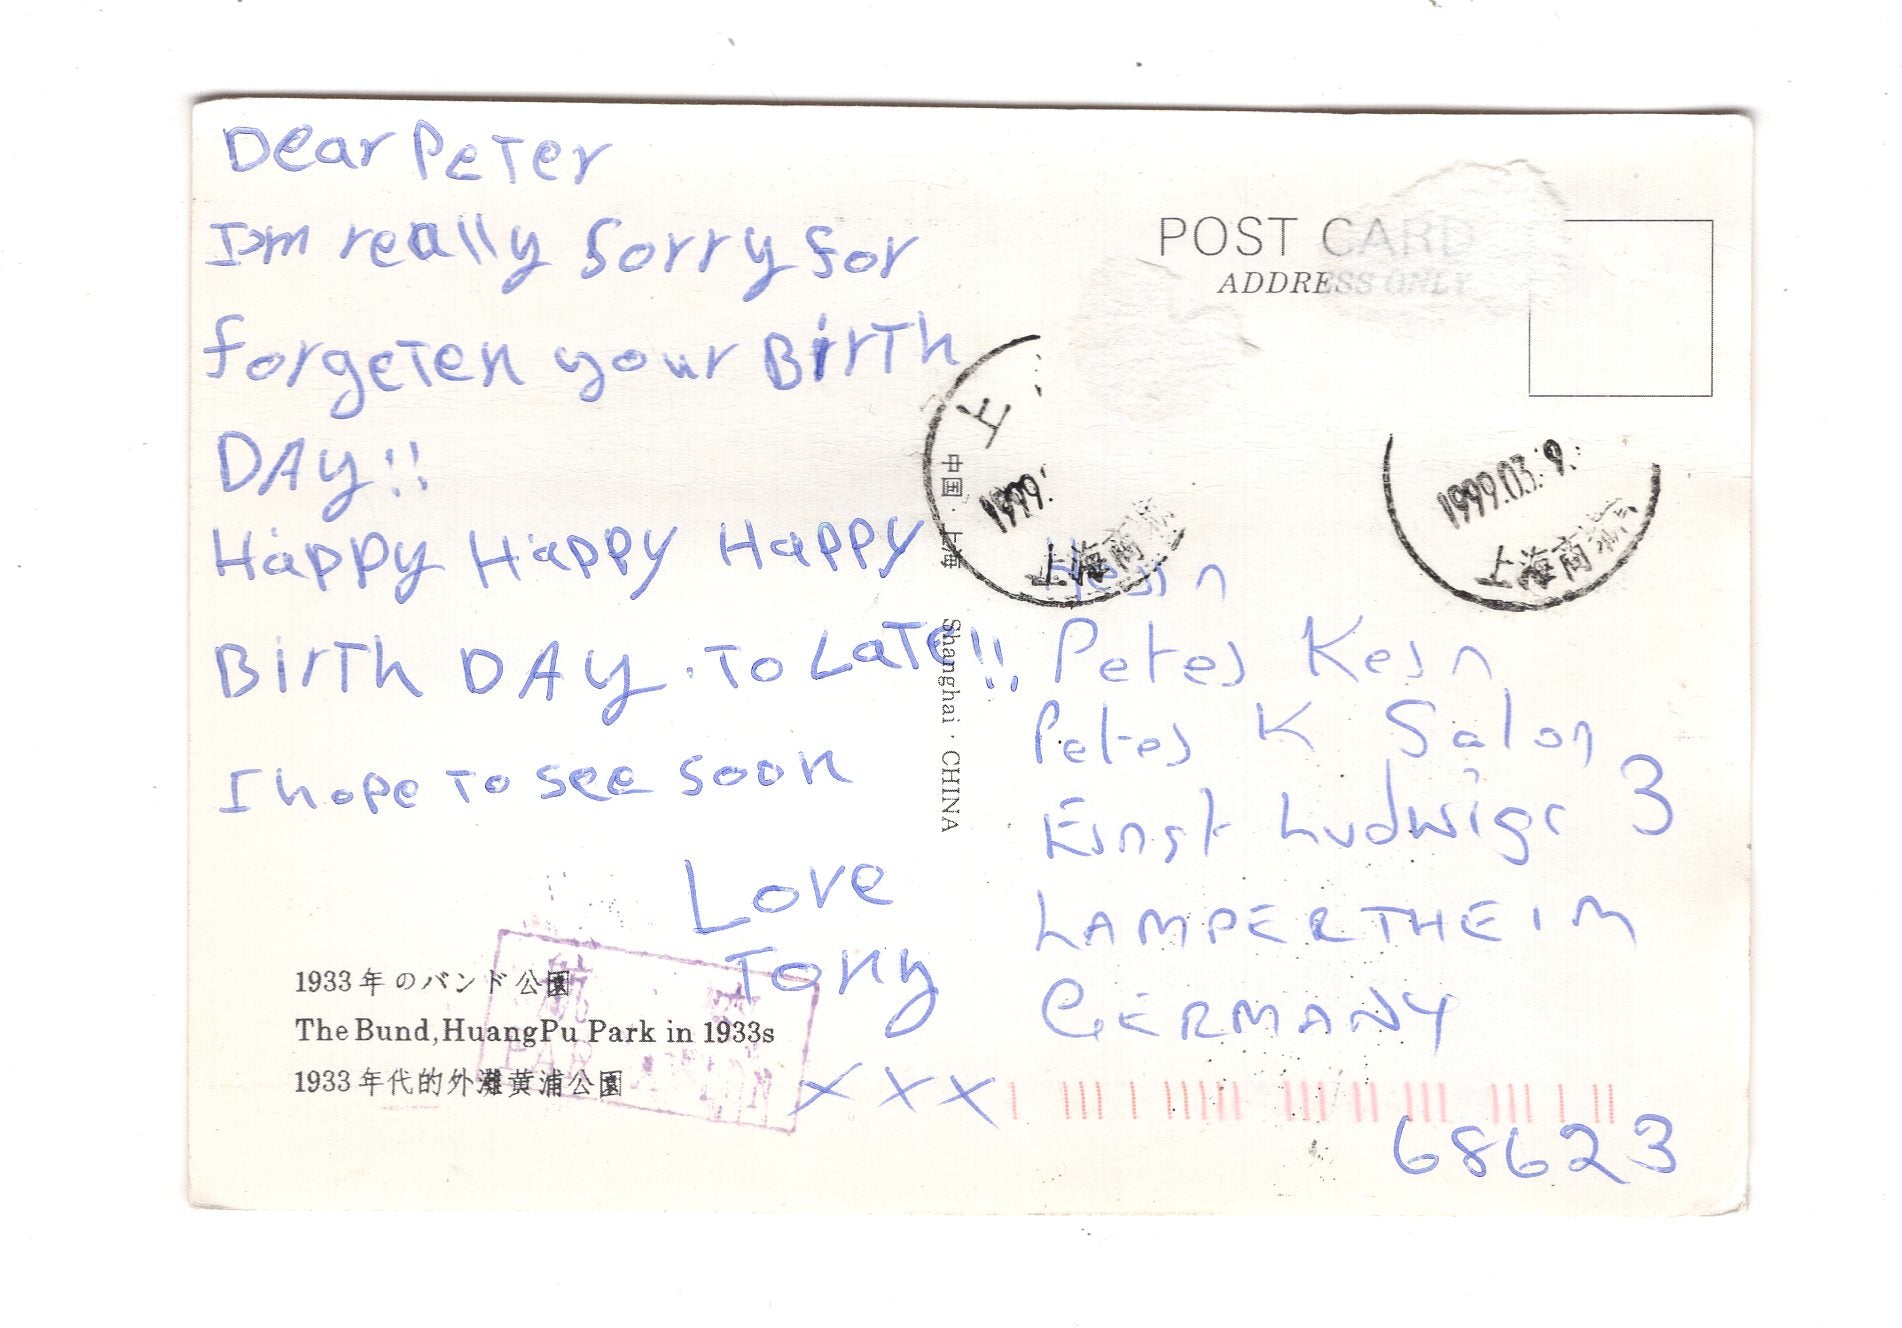 Dear Peter
I'm really sorry for
forgeten your Birth
DAy!!
Happy Happy Happy
Birth DAy To Late!!
I hope to see soon
Love
Tony
xxx
1933年のバンド公園
The Bund,HuangPu Park in 1933s
1933年代的外灘黄浦公園
中国·上海 Shanghai·CHINA
POST CARD
ADDRESS ONLY
上
1999.
上海商
1999.03.9.
上海商
Herrn
Peter Kern
Peter K Salon
Ernst Ludwigs 3
LAMPERTHEIM
GERMANY
68623
航
PAR